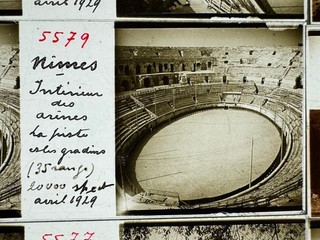 avril 1929
5579
Nîmes
Intérieur
des
arènes
la piste
et les gradins
(35 rangs)
20000 spect
avril 1929
5577